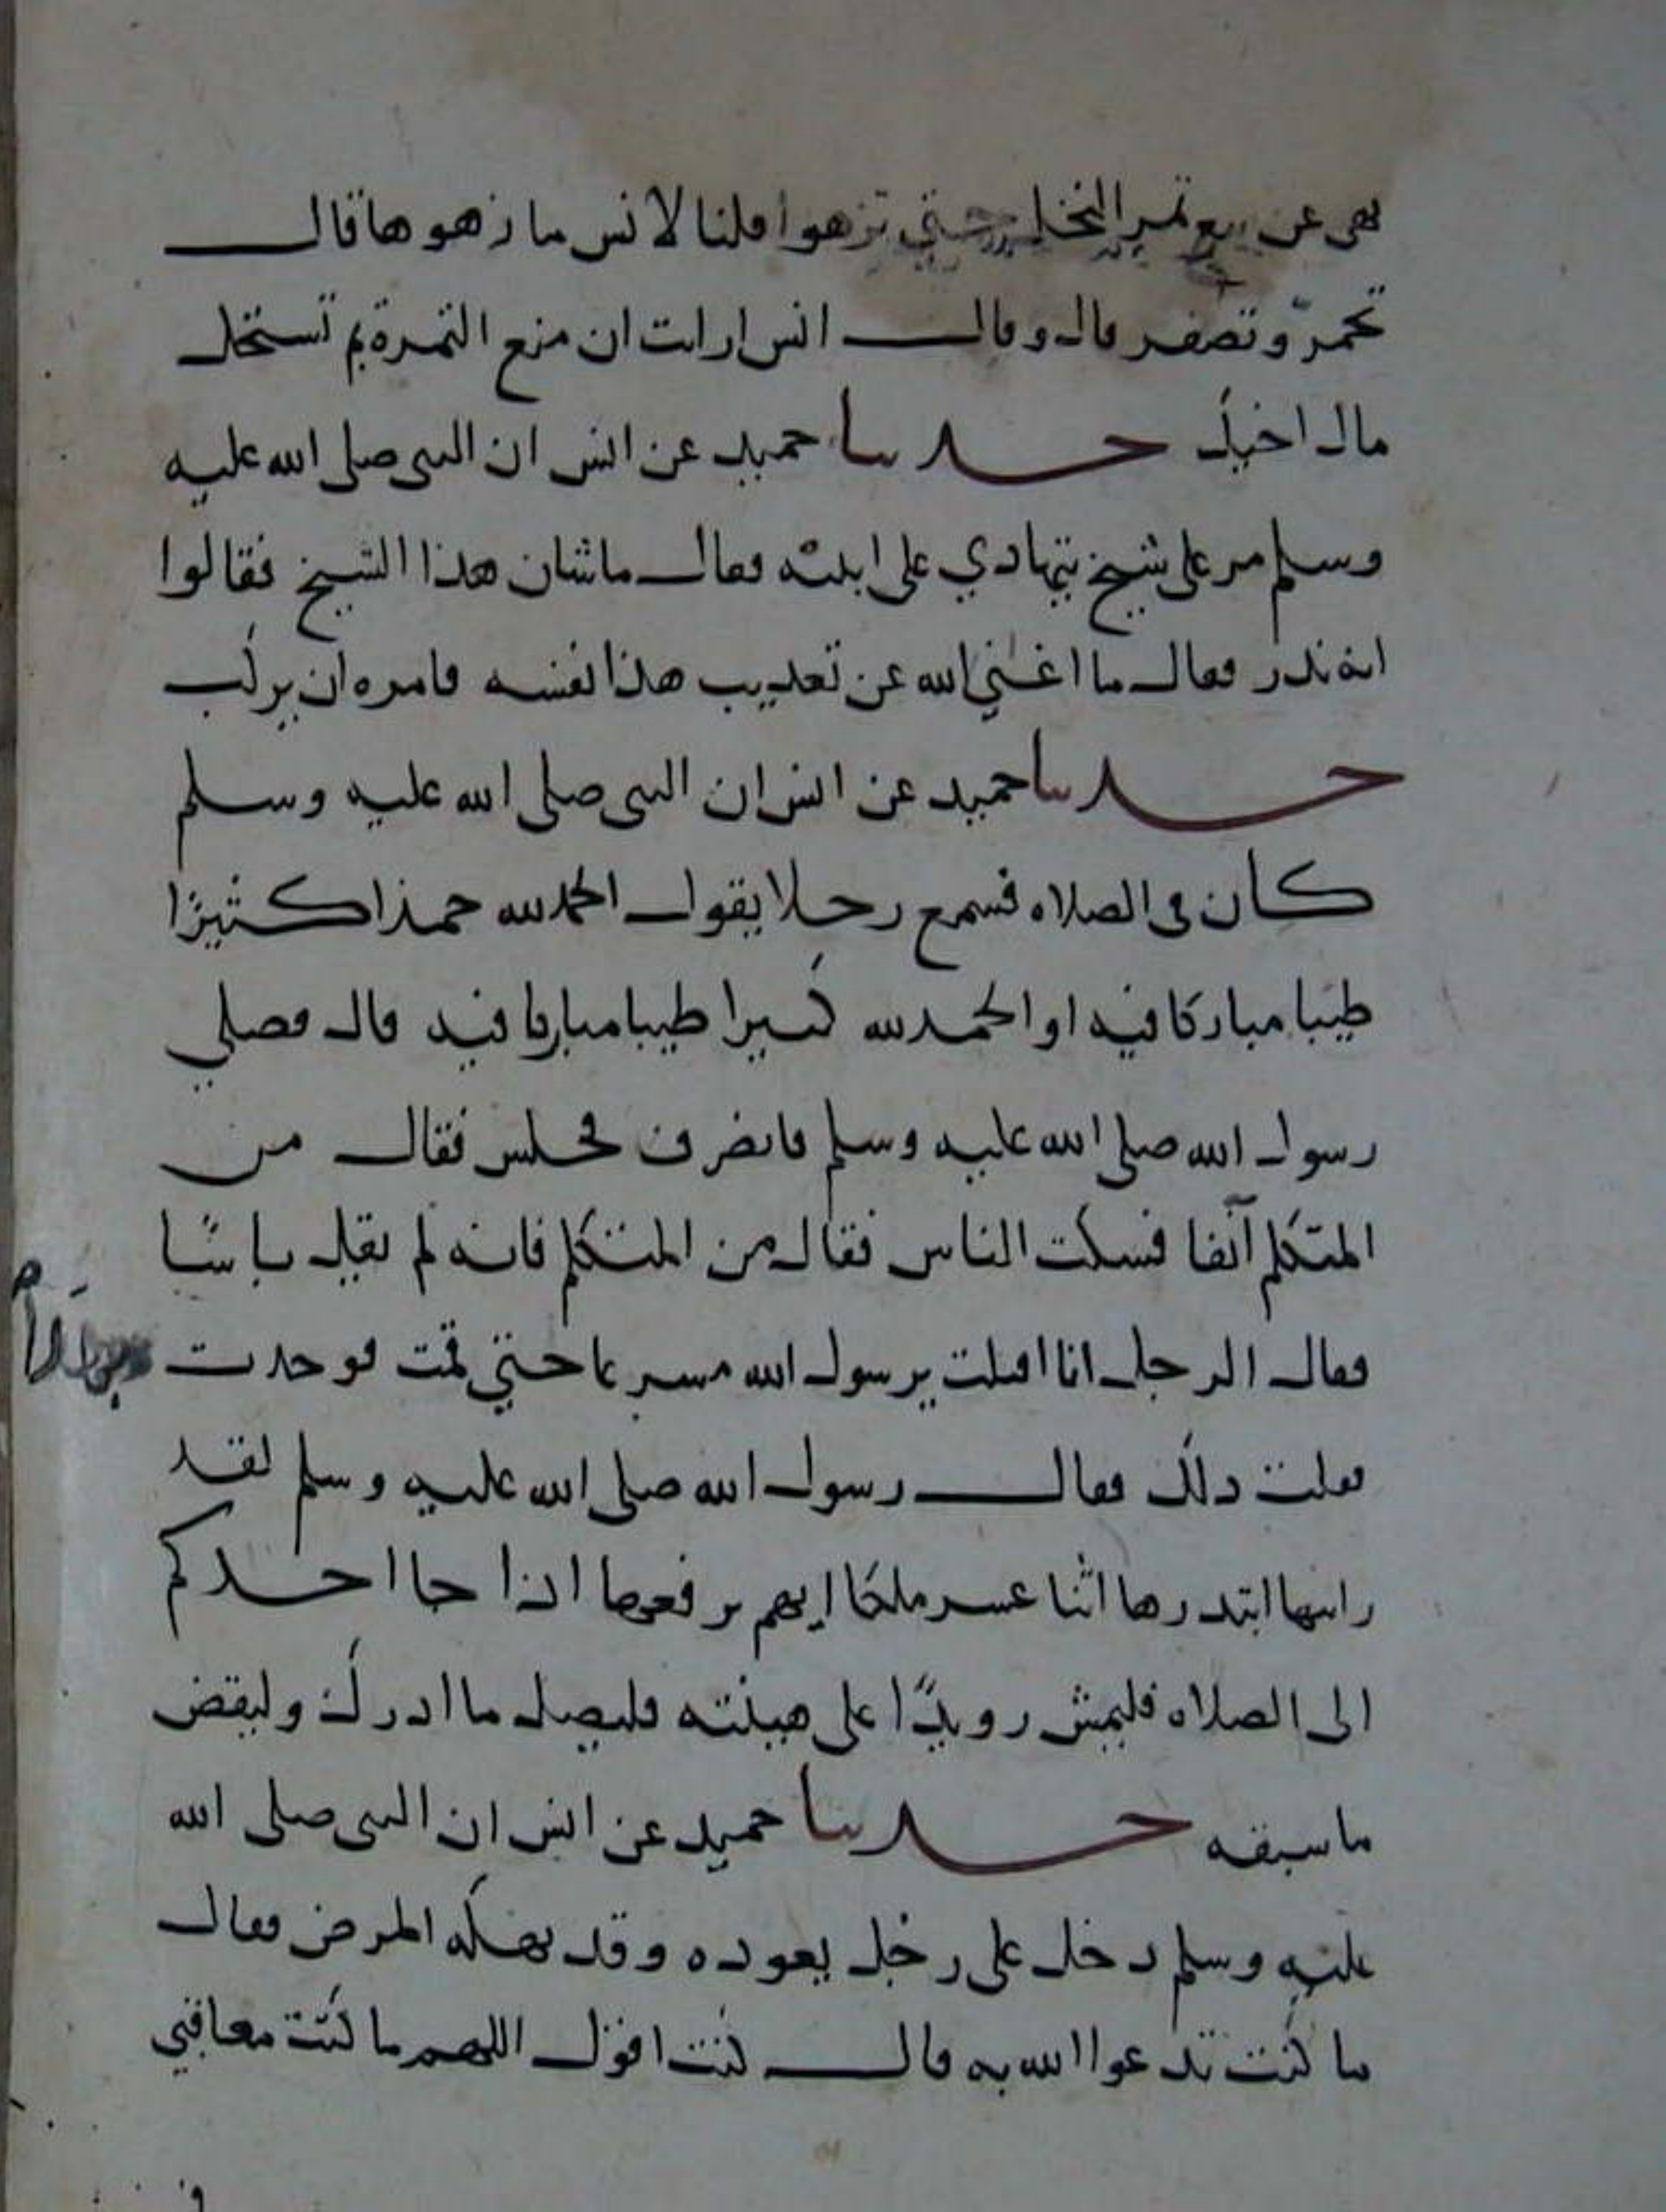 نهى عن بيع تمر النخل حتى تزهوا قلنا لانس ما زهوها قال
تحمرّ وتصفر قال وقال انس ارايت ان منع الثمرة بم تستحل
مال اخيك حدثنا حميد عن انس ان النبي صلى الله عليه
وسلم مر على شيخ يتهادي على ابنيه فقال ما شان هذا الشيخ فقالوا
انه نذر فقال ما اغنى الله عن تعذيب هذا نفسه فامره ان يركب
حدثنا حميد عن انس ان النبي صلى الله عليه وسلم
كان في الصلاه فسمع رجلا يقول الحمد لله حمدا كثيرًا
طيبا مباركا فيه او الحمد لله كثيرا طيبا مباركا فيه قال فصلي
رسول الله صلى الله عليه وسلم فانصرف فجلس فقال من
المتكلم آنفا فسكت الناس فقال من المتكلم فانه لم يقل باسًا
فقال الرجل انا اقبلت يرسول الله مسرعا حتى قمت فوجدت
فقلت ذلك فقال رسول الله صلى الله عليه وسلم لقد
رايتها ابتدرها اثنا عشر ملكا ايهم يرفعها اذا جا احدكم
الى الصلاه فليمش رويدًا على هينته فليصل ما ادرك وليقض
ما سبقه حدثنا حميد عن انس ان النبي صلى الله
عليه وسلم دخل على رجل يعوده وقد نهكه المرض فقال
ما كنت تدعوا الله به قال كنت اقول اللهم ما كنت معاقبي
في